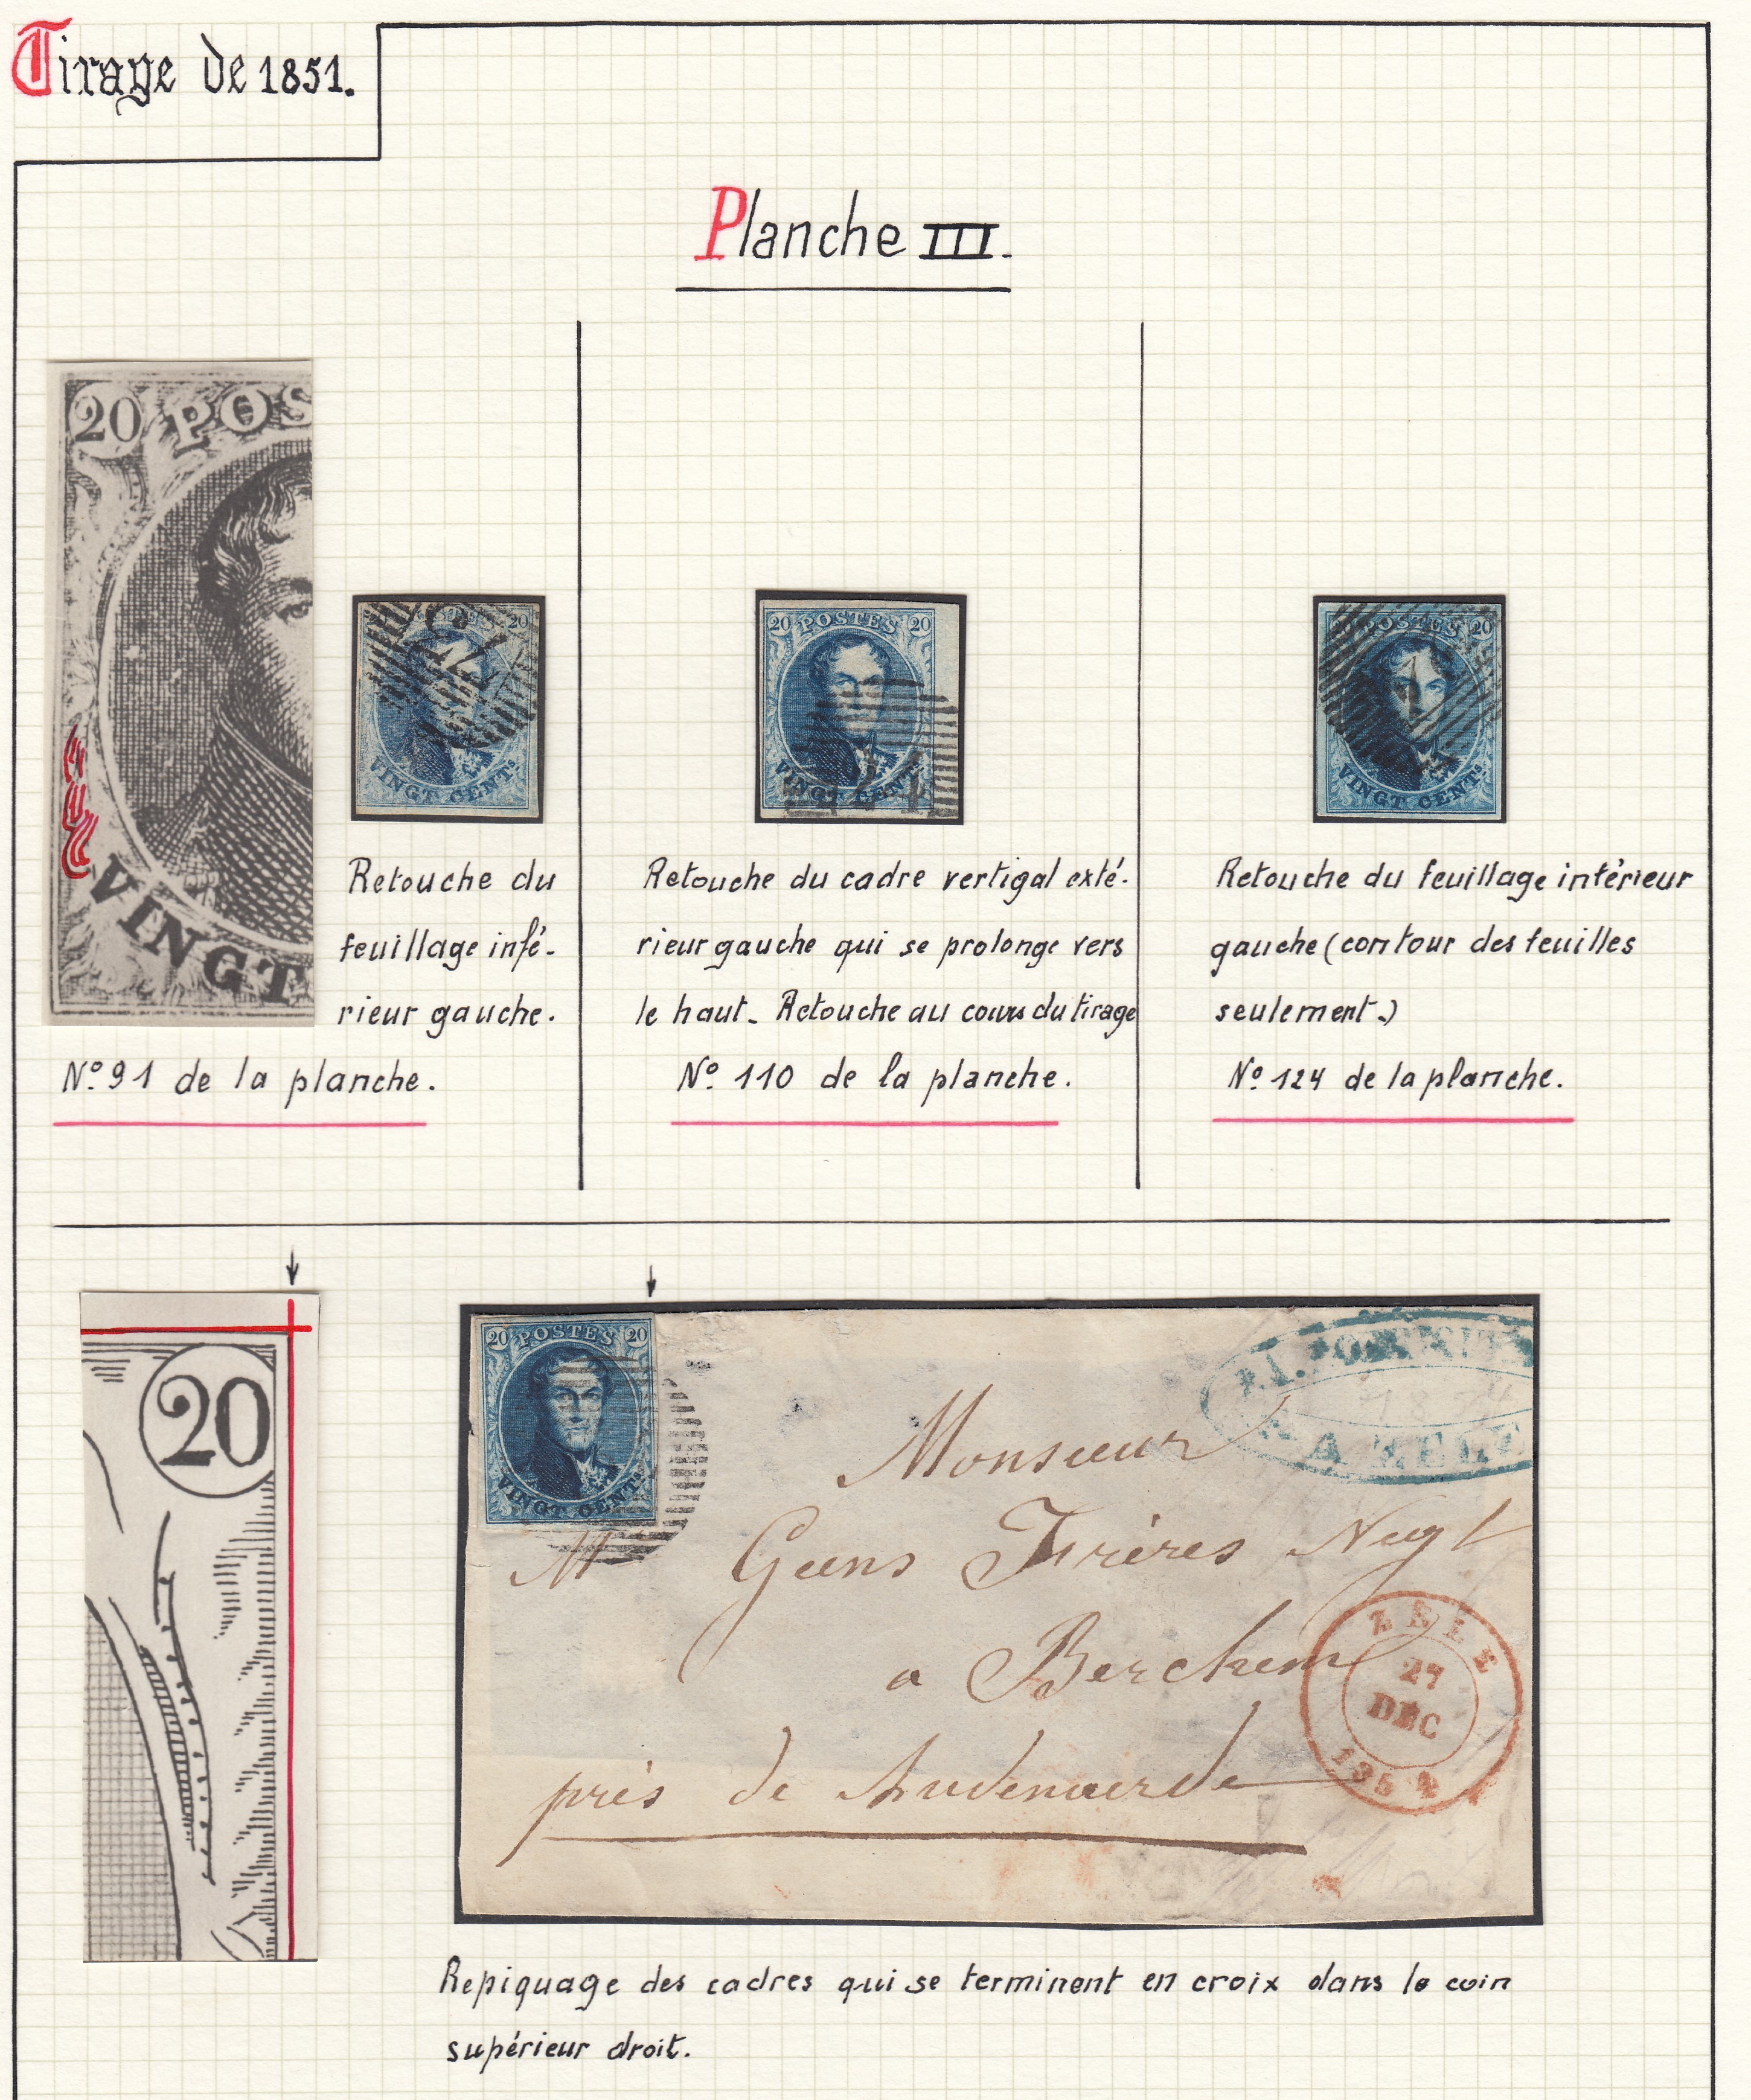 Tirage de 1851.
Planche III.
20 POS
VINGT
POSTES 20
VINGT CENTS
20 POSTES 20
VINGT CENTS
POSTES 20
VINGT CENTS
Retouche du
feuillage infé-
rieur gauche.
No. 91 de la planche.
Retouche du cadre vertigal exté-
rieur gauche qui se prolonge vers
le haut. Retouche au cours du tirage
No. 110 de la planche.
Retouche du feuillage intérieur
gauche (contour des feuilles
seulement.)
No. 124 de la planche.
20
20 POSTES 20
VINGT CENTS
Monsieur
M Geens Frères Negt
a Berchem
près de Audenaerde
ZELE
27
DEC
1854
Repiquage des cadres qui se terminent en croix dans le coin
supérieur droit.